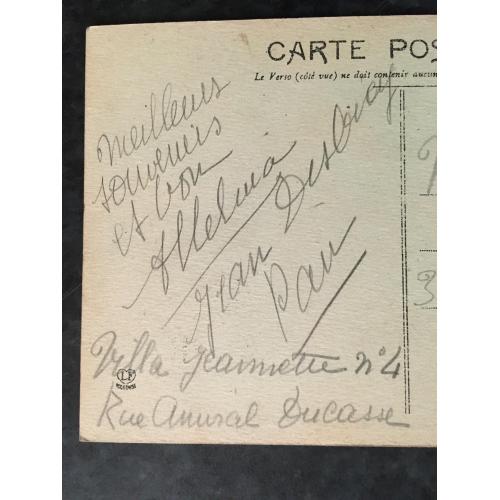 CARTE POS
Le Verso (côté vue) ne doit contenir aucun
Meilleurs
souvenirs
et bon
Alleluia
Jean
Pau
Villa Jeannette n°4
Rue Amiral Ducasse
LF
3